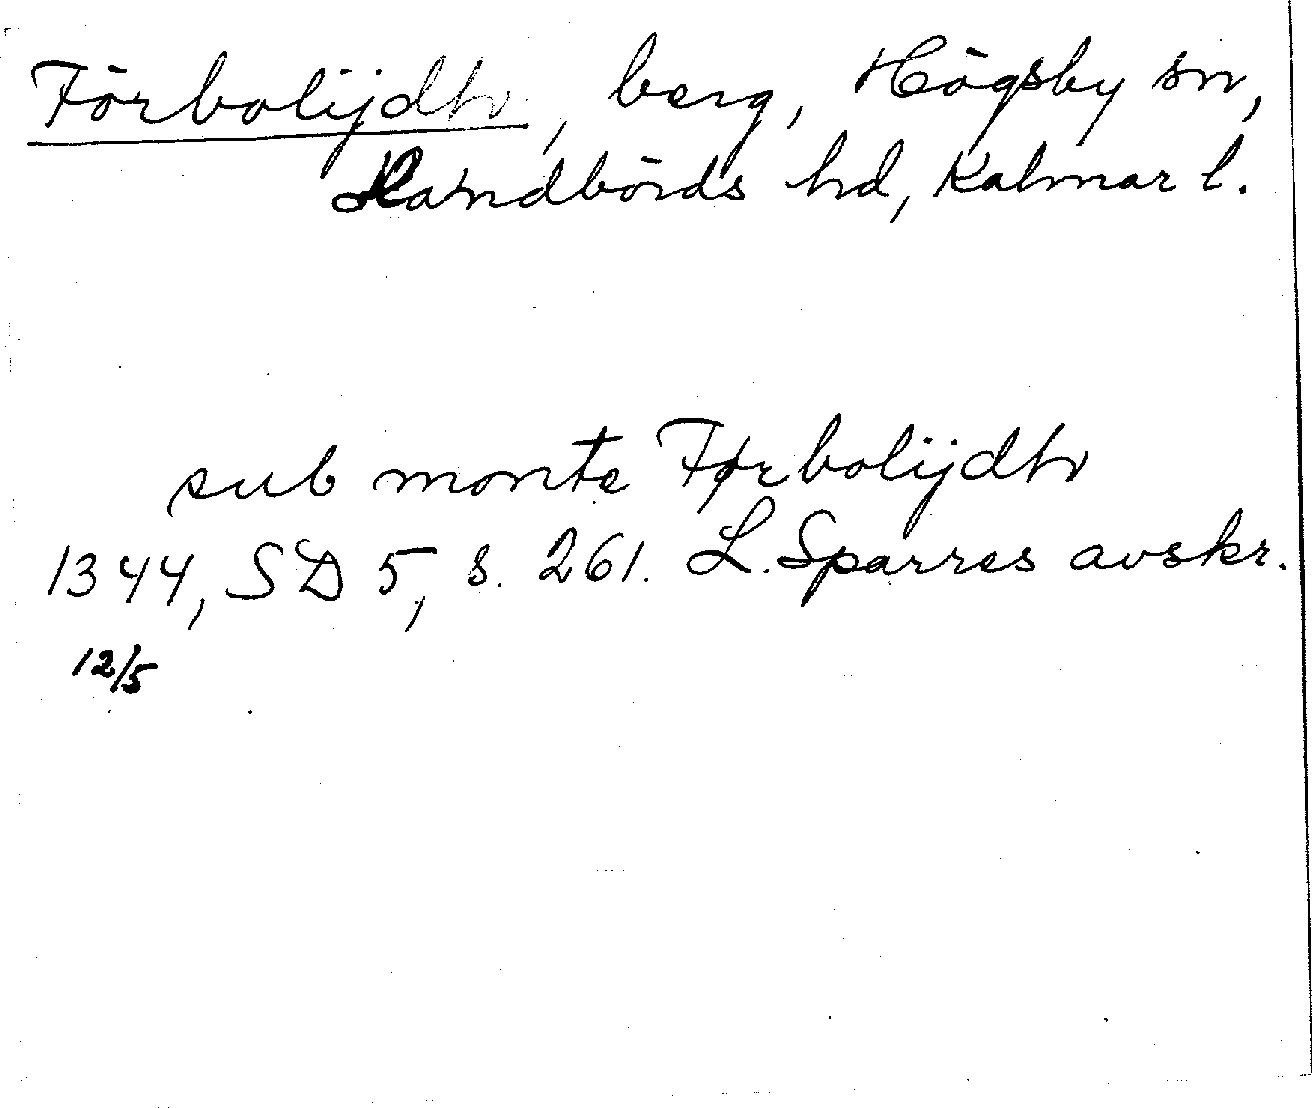 Förbolijdh, berg, Högsby sn,
Handbörds hd, Kalmar l.
sub monteFørbolijdh
1344, SD 5, s. 261. L. Sparres avskr.
12/5